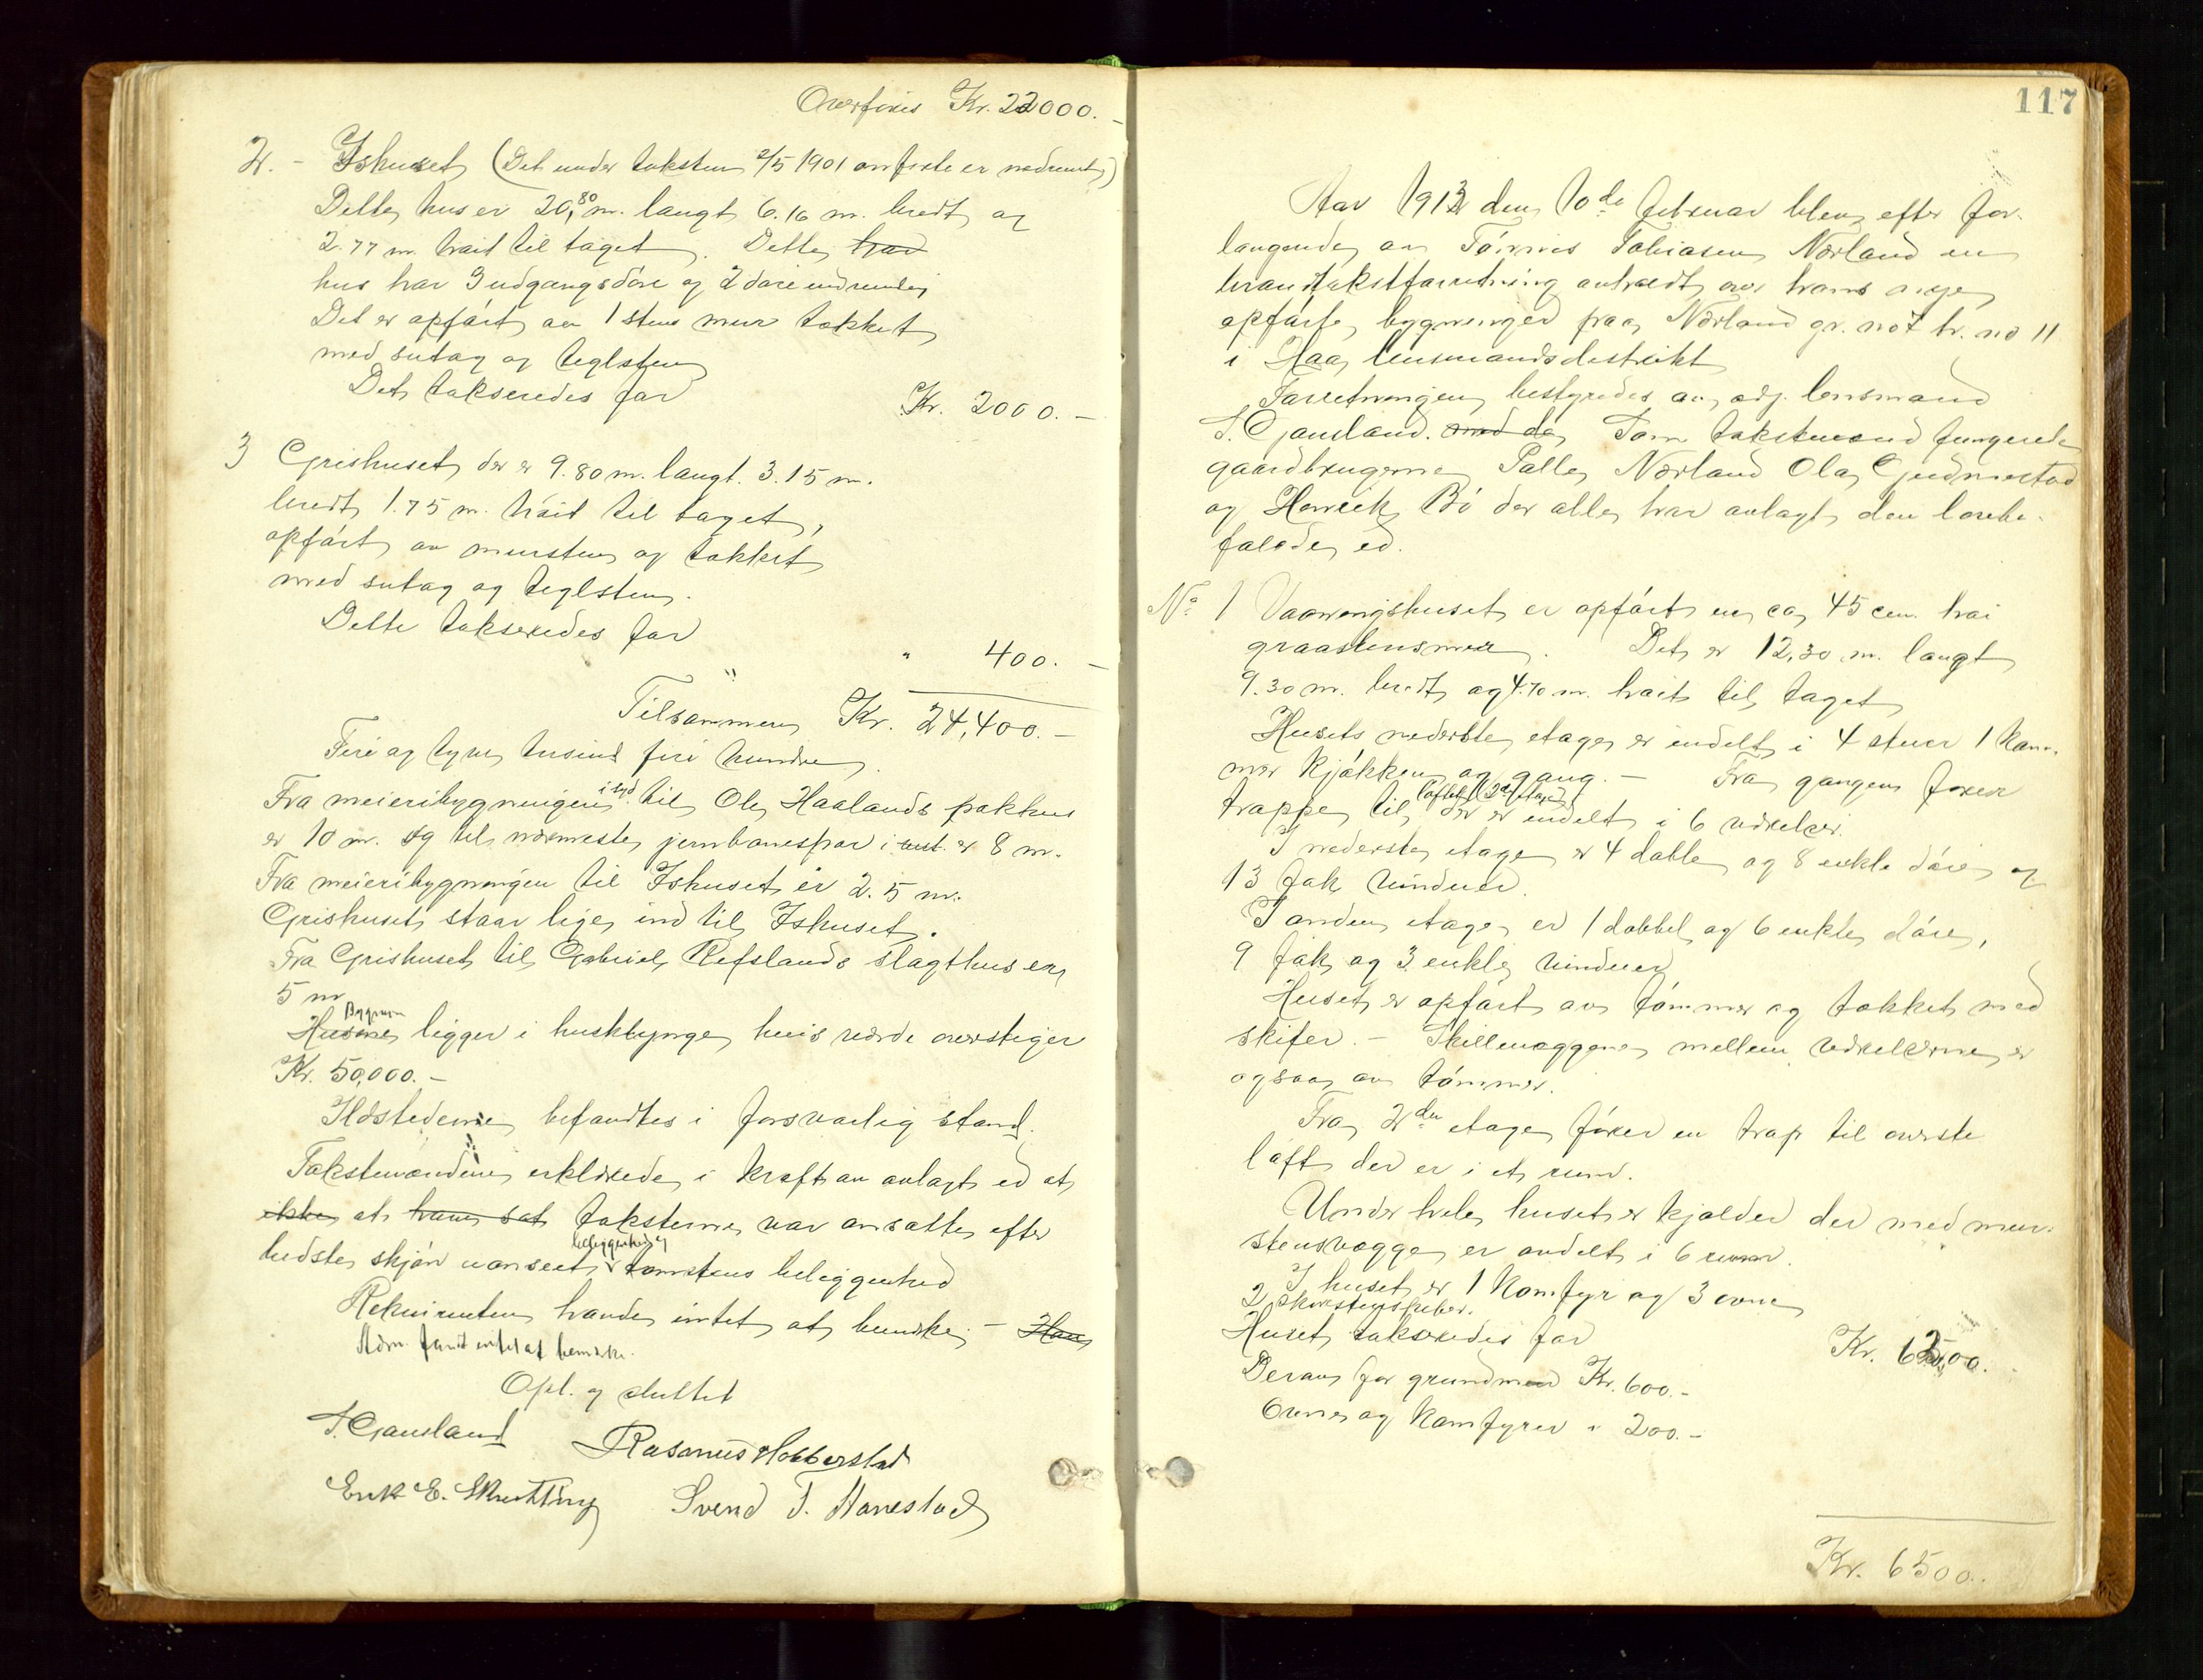 Overføres Kr. 22000.-
2. - Ishuset (Det under taksten 2/5 1901 anførte er nedrevet)
Dette hus er 20,80 m. langt 6.16 m. bredt og
2.77 m. høit til taget. Dette har
hus har 3 udgangsdøre og 2 døre indvendig
Det er opført av 1 stens mur tækket
med sutag og teglsten
Det takseredes for Kr. 2000.-
3 Grishuset der er 9.80 m. langt. 3.15 m.
bredt 1.75 m. høit til taget,
opført av mursten og tækket
med sutag og teglsten.
Dette takseredes for
" 400.-
Tilsammen Kr. 24,400.-
Firi og tyve tusind firi hundre
Fra meieribygningen i syd til Ole Haalands pakhus
er 10 m. og til nærmeste jernbanespor i vest er 8 m.
Fra meieribygningen til Ishuset er 2.5 m.
Grishuset staar lige ind til Ishuset.
Fra Grishuset til Gabriel Refslands slagthus er
5 m
Bygnin
Husene ligger i husklynge, hvis værdi overstiger
Kr. 50,000.-
Ildstederne befandtes i forsvarlig stand.
Takstmændene erklærede i kraft av avlagt ed at
ikke at have sat taksterne var ansatte efter
beliggenhed og
bedste skjøn uanseet tomtens beliggenhed
Rekvirenten havde intet at bemerke - Han
Adm. fandt intet at bemerke.
Opl. og sluttet
T. Gausland Rasmus Hobberstad
Erik E. Skretting Svend T. Hanestad
117
Aar 1913 den 10de februar blev efter for-
langende av Tønnes Tobiasen Nærland en
brandtakstforretning avholdt over hans nye
opførte bygninger paa Nærland gr. no 7 br. no 11
i Haa lensmandsdistrikt
Forretningen bestyredes av adj. lensmand
T. Gausland. med de Som takstmænd fungerede
gaardbrugerne Palle Nærland Ola Gudmestad
og Henrik Bø der alle har avlagt den lovbe-
falede ed.
No. 1 Vaaningshuset er opført en ca 45 cm. høi
graastensmur. Det er 12,30 m. langt
9.30 m. bredt og 4.70 m. høit til taget
Husets nederste etage er indelt i 4 stuer 1 kam-
mer kjøkken og gang. - Fra gangen fører
loftet (2d etage)
trappe til der er indelt i 6 værelser.
I nederste etage er 4 doble og 8 enkle døre og
13 fak vinduer.
I anden etage er 1 dobbel og 6 enkle døre,
9 fak og 3 enkle vinduer
Huset er opført av tømmer og tækket med
skifer. - Skillevæggene mellem værelserne er
ogsaa av tømmer.
Fra 2den etage fører en trap til øverste
loft der er i et rum.
Under hele huset er kjælder der med mur-
stensvægge er avdelt i 6 rum.
I huset er 1 komfyr og 3 ovne
2 skorstenspiber.
Huset takseredes for Kr. 6500.
Derav for grundmur Kr. 600.-
Ovner og komfyrer " 200.-
Kr. 6500.